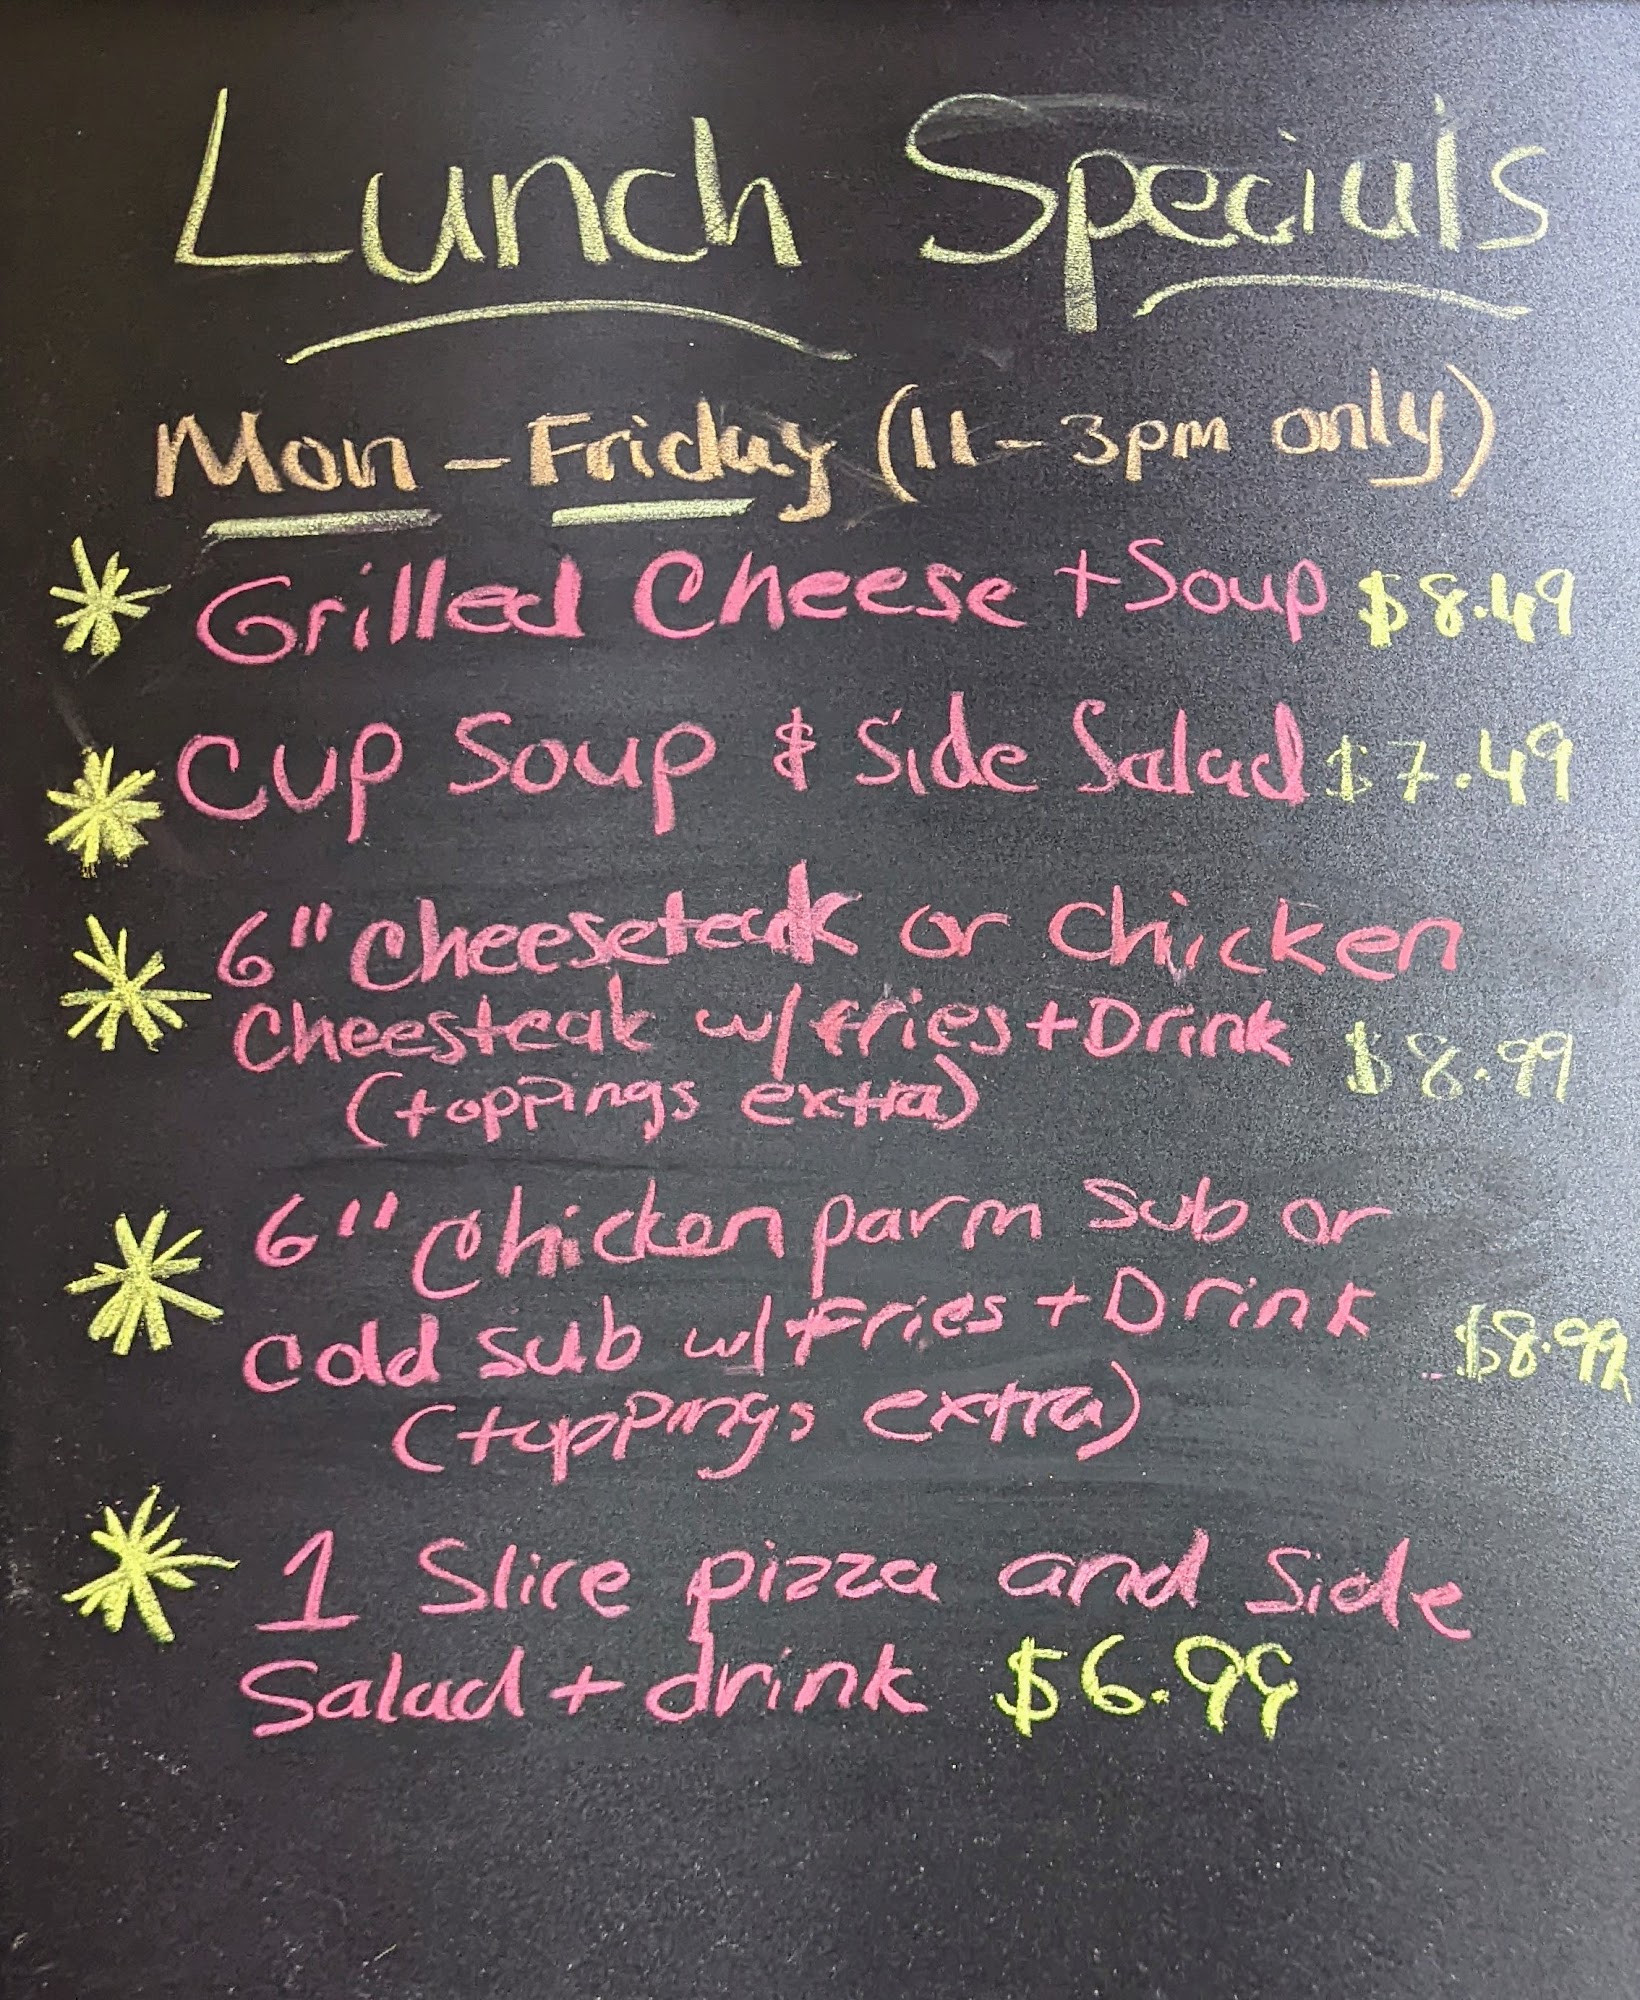 Lunch Specials
Mon - Friday (11 - 3pm only)
Grilled Cheese + Soup $8.49
Cup Soup & Side Salad $7.49
6" Cheeseteak or Chicken
Cheesteak w/ fries + Drink $8.99
(toppings extra)
6" Chicken parm sub or
Cold sub w/ Fries + Drink $8.99
(toppings extra)
1 Slice pizza and Side
Salad + drink $6.99